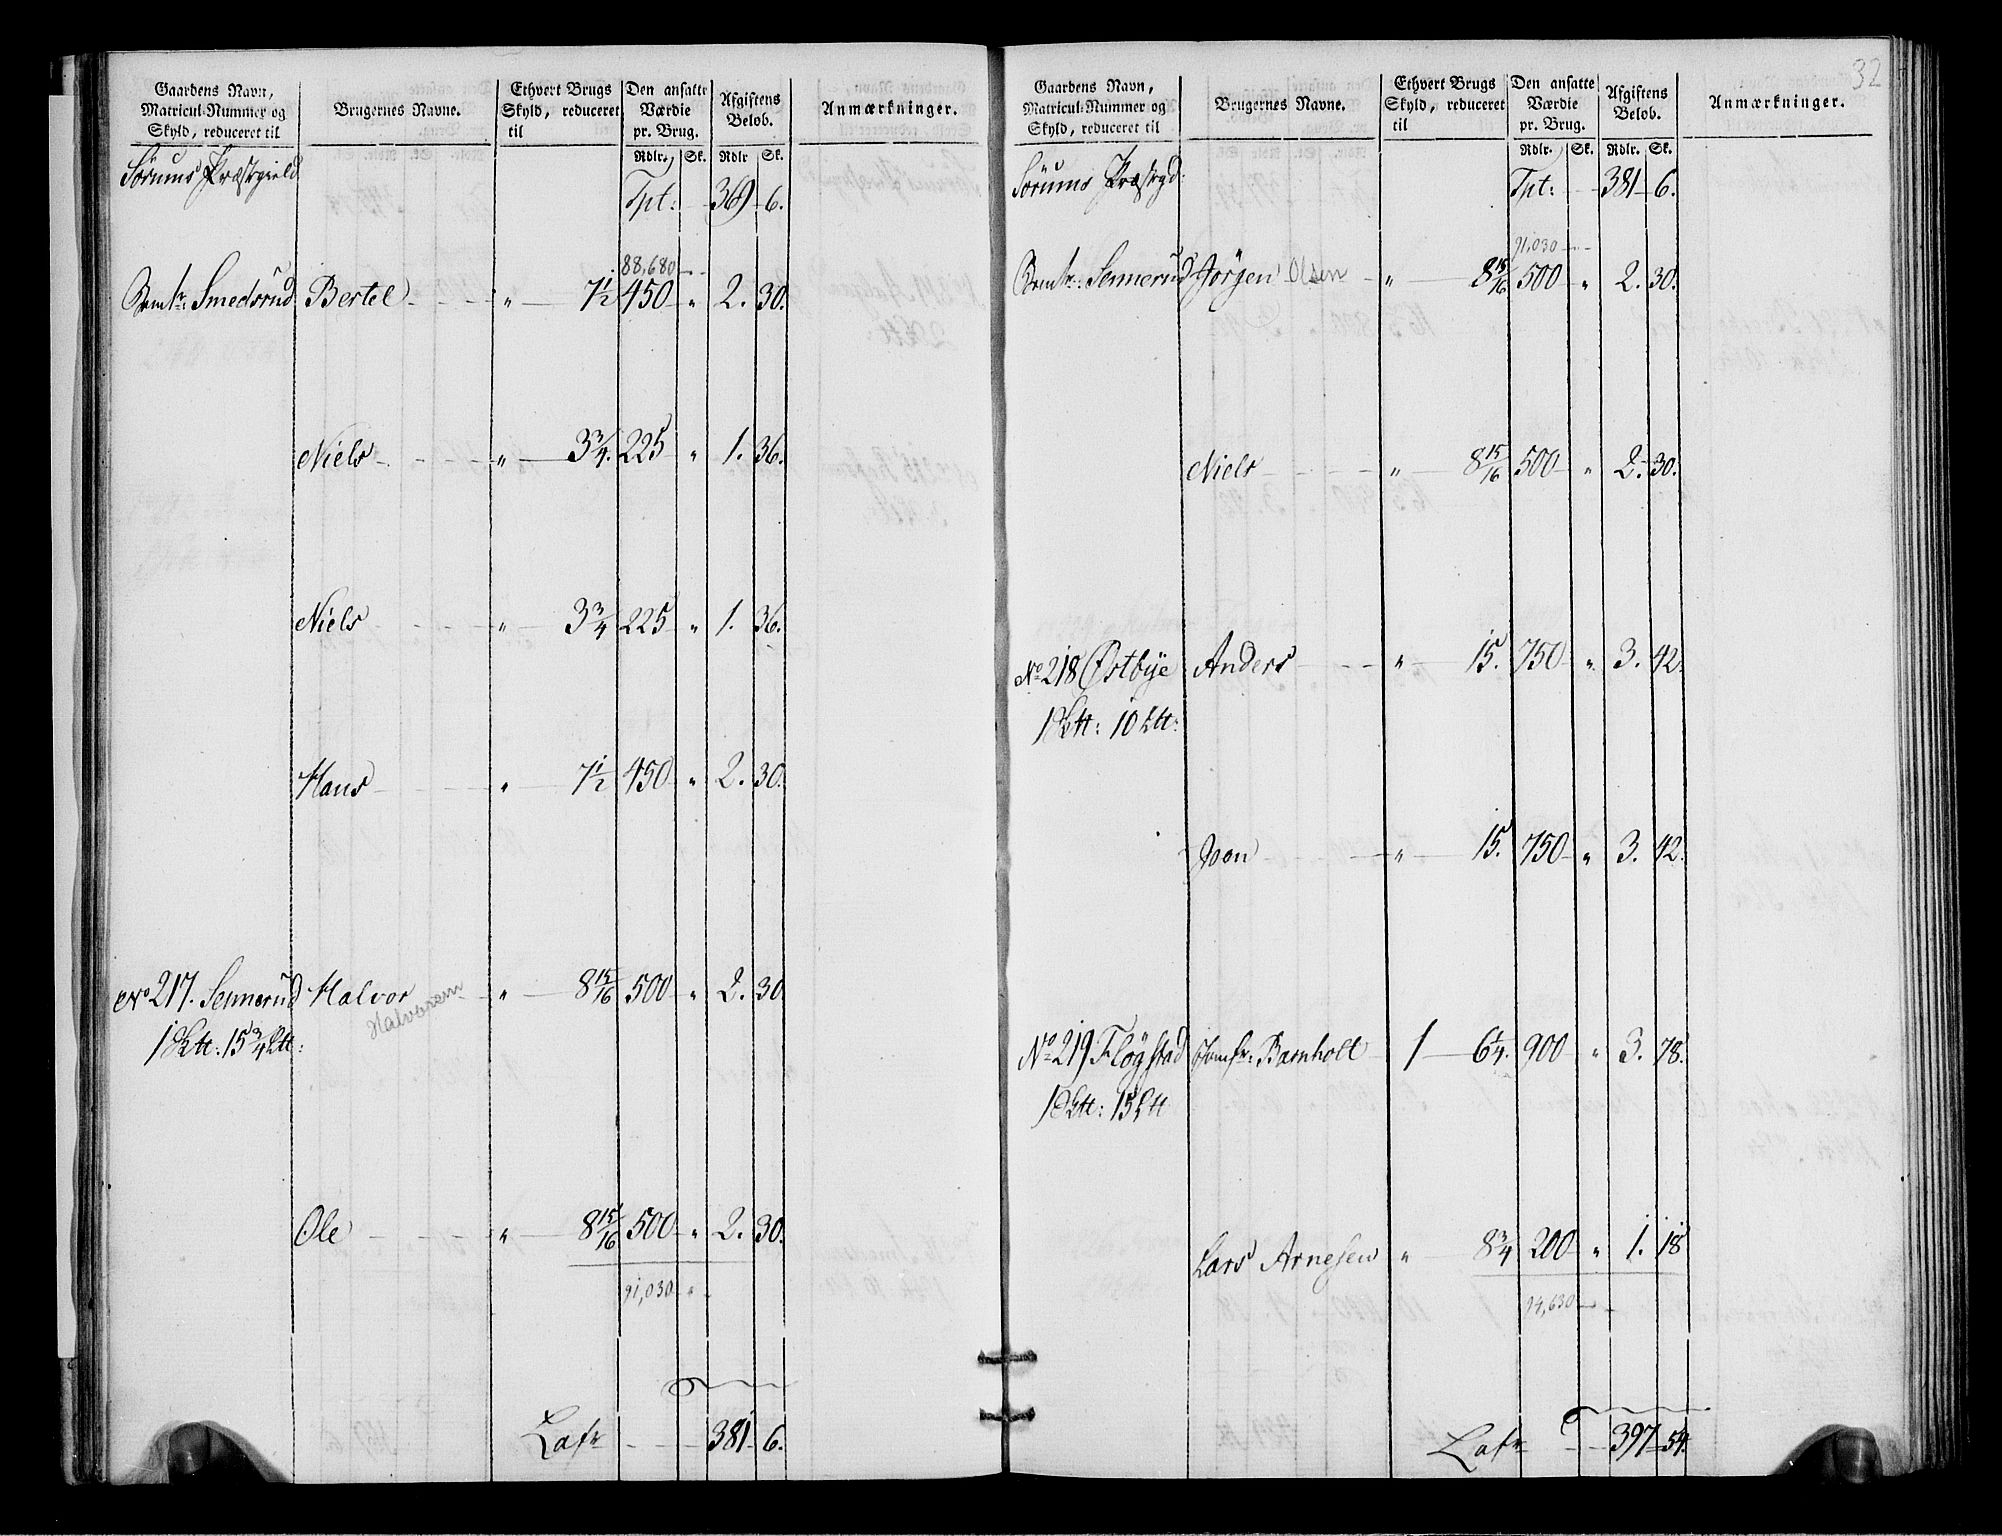 Gaardens Navn, Matricul-Nummer og Skyld, reduceret til | Brugernes Navne. | Ethvert Brugs Skyld, reduceret til | Den ansatte Værdie pr. Brug. | Afgiftens Beløb. | Anmærkninger.
Rdlr. Sk. Rdlr Sk.
Sørums Præstegield
Tpt: 369 6.
88,680
Smedsrud Bertel " 7 1/2 450 " 2. 30.
Niels " 3 3/4. 225 " 1. 36.
Niels " 3 3/4 225 " 1. 36.
Hans " 7 1/2 450 " 2. 30.
No 217. Sennerud Halvor " 8 15/16 500 " 2. 30
Halvorsen
1 15 3/4
Ole " 8 15/16 500 " 2. 30.
91,030
Lafr 381 6.
32
Gaardens Navn, Matricul-Nummer og Skyld, reduceret til | Brugernes Navne. | Ethvert Brugs Skyld, reduceret til | Den ansatte Værdie pr. Brug. | Afgiftens Beløb. | Anmærkninger.
Rdlr. Sk. Rdlr. Sk.
Sörums Præstegd:
Tpt: 381 6.
91,030
Sennerud Jörgen Olsen " 8 15/16 500 " 2. 30.
Niels " 8 15/16 500 " 2. 30.
No 218 Østbye Anders " 15. 750 " 3. 42.
1 10
Joen " 15. 750 " 3. 42.
No 219 Fløgstad Jomfr: Bamholt 1 6 1/4. 900 " 3. 78.
1 15
Lars Arnesen " 8 3/4 200 " 1. 18
94,630
Lafr 397 54.